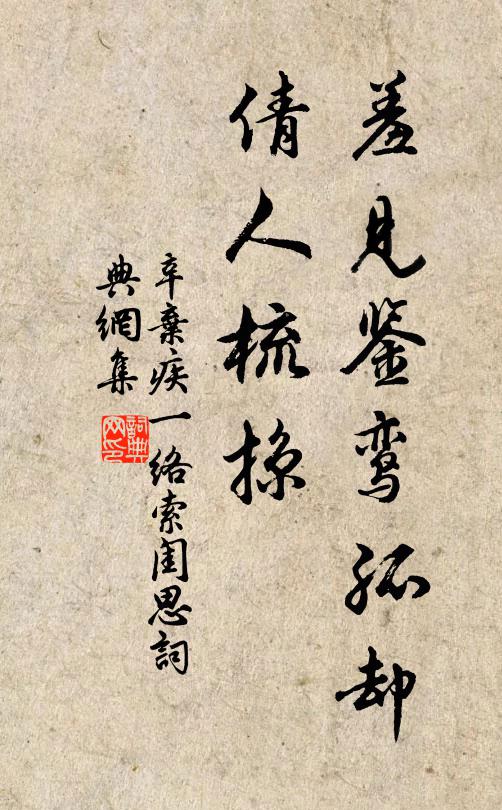 羞见鉴鸾孤却
倩人梳掠
辛棄疾一络索闺思詞
典網集
詞典网印